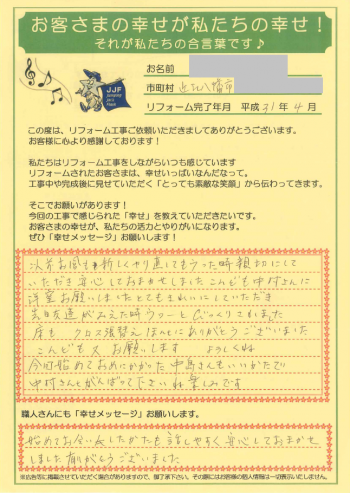 お客さまの幸せが私たちの幸せ！
それが私たちの合言葉です♪
JJF
お名前
市町村 近江八幡市
リフォーム完了年月 平成31年4月
この度は、リフォーム工事ご依頼いただきましてありがとうございます。
お客様に心より感謝しております！
私たちはリフォーム工事をしながらいつも感じています
リフォームされたお客さまは、幸せいっぱいなんだなって。
工事中や完成後に見せていただく「とっても素敵な笑顔」から伝わってきます。
そこでお願いがあります！
今回の工事で感じられた「幸せ」を教えていただきたいです。
お客さまの幸せが、私たちの活力とやりがいになります。
ぜひ「幸せメッセージ」お願いします！
お風呂 新しくやり直してもらった時親切にして
いただき安心しておまかせしましたこんども中村さんに
洋室お願いしましたとてもきれいにしていただき
友達がみえた時 びっくりされました
床も クロス張替えほんとにありがとうございました
こんども又 お願いします よろしくね
今回始めておめにかかった中島さんもいいかたで
中村さんとがんばってください 楽しみです
職人さんにも「幸せメッセージ」お願いします。
始めてお会いしたかたも話しやすく安心しておまかせ
しました有りがとうございました
※広告等に掲載させていただく場合がありますので、御了承下さい。その際にはお客様の個人情報は一切表示いたしません。